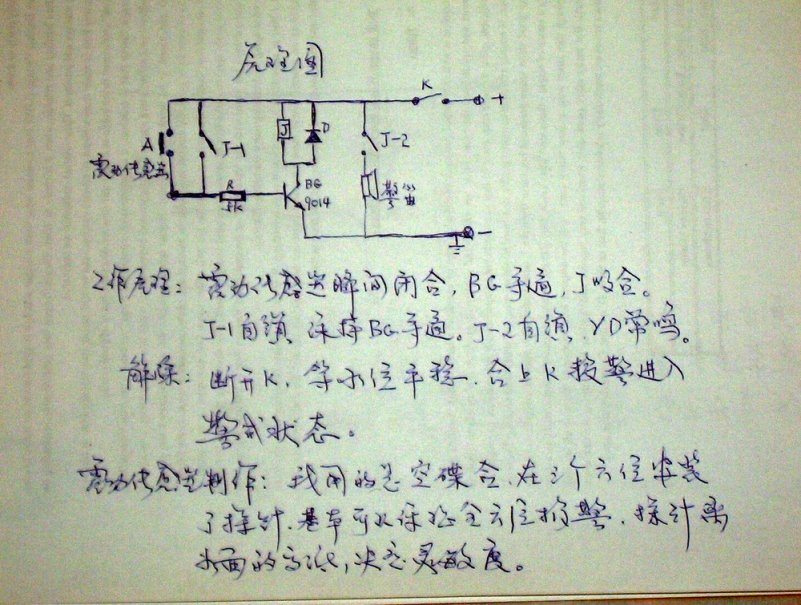 原理图
K
+
A
J-1
J
D
J-2
震动传感器
R
5K
BG
9014
警笛
-
工作原理: 震动传感器瞬间闭合, BG导通, J吸合。
J-1自锁 保持BG导通。J-2自锁, YD常鸣。
解除: 断开K, 等水位平稳, 合上K 报警进入
警戒状态。
震动传感器制作: 我用的是空碟合, 在三个方位安装
了探针, 基本可以保证全方位报警, 探针离
水面的高低, 决定灵敏度。